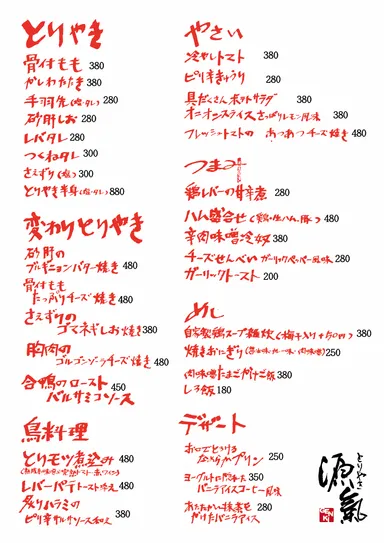 とりやき
骨付もも 380
かしわたたき 380
手羽先(塩・タレ) 280
砂肝しお 280
レバタレ 280
つくねタレ 300
さえずり(塩) 300
とりやき半身(塩・タレ) 880
変わりとりやき
砂肝の
ブルギニョンバター焼き 480
骨付もも
たっぷりチーズ焼き 480
さえずりの
ゴマネギしお焼き 380
胸肉の
ゴルゴンゾーラチーズ焼き 480
合鴨のロースト 450
バルサミコソース
鳥料理
とりモツ煮込み 480
レバーパテトースト添え 480
炙りハラミの
ピリ辛サルサソース和え 380
やさい
冷やしトマト 380
ピリ辛きゅうり 280
具だくさんポテトサラダ 380
オニオンスライスさっぱりレモン風味 380
フレッシュトマトの あつあつチーズ焼き 480
つまみ
鶏レバーの甘辛煮 280
ハム盛合せ(鶏・生ハム・豚) 480
辛肉味噌冷奴 380
チーズせんべいガーリックペッパー風味 280
ガーリックトースト 200
めし
自家製鶏スープ雑炊(梅干入り+50円) 380
焼きおにぎり 250
肉味噌たまごかけご飯 380
しろ飯 180
デザート
お口でとろける
なめらかプリン 250
ヨーグルトに隠れた 350
バニラアイスコーヒー風味
あたたかい抹茶を 280
かけたバニラアイス
とりやき
源氣
GENKI